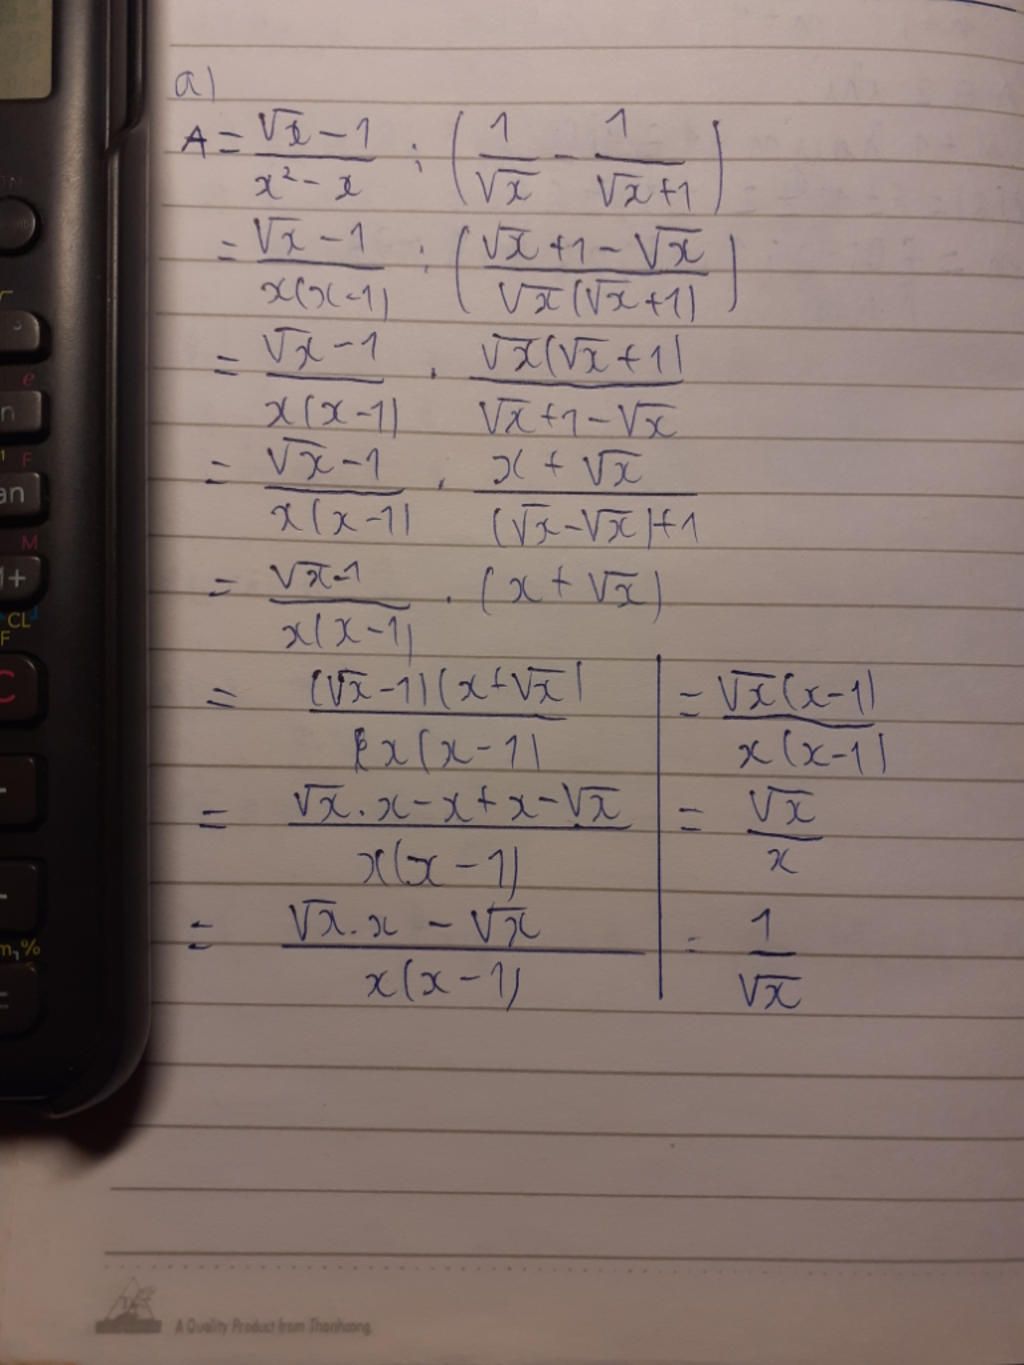 a)
A = (√x - 1)/(x² - x) : (1/√x - 1/(√x+1))
= (√x - 1)/(x(x-1)) : ((√x+1-√x)/(√x(√x+1)))
= (√x - 1)/(x(x-1)) . (√x(√x+1))/(√x+1-√x)
= (√x-1)/(x(x-1)) . (x + √x)/((√x-√x)+1)
= (√x-1)/(x(x-1)) . (x + √x)
= ((√x-1)(x+√x))/(x(x-1))
= (√x.x-x+x-√x)/(x(x-1))
= (√x.x - √x)/(x(x-1))
= (√x(x-1))/(x(x-1))
= √x/x
= 1/√x
e
n
F
an
M
CL
F
C
%
A Quality Product from Thanhcong.